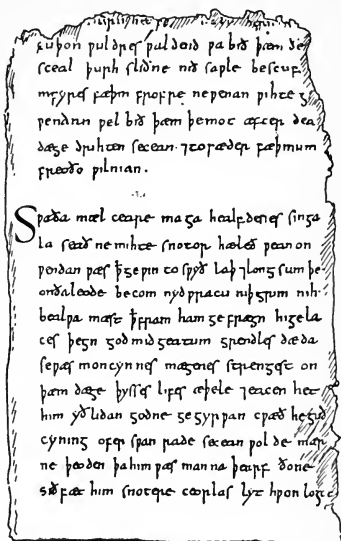 cuþon ƿuldres ƿaldend ƿa bið þæm ðe
sceal þurh sliðne nið saƿle bescuf
in fyres fæþm frofre ne ƿenan ƿihte g
ƿendan ƿel bið þæm þe mot æfter dea
dæge drihten secean · ⁊ to fæder fæþmum
freoðo ƿilnian ·
Sƿa ða mæl ceare maga healfdenes singa
la seað ne mihte snotor hæleð ƿean on
ƿendan ƿæs ꝥ geƿin to sƿyð laþ ⁊ long sum þe
on ða leode becom nyd ƿracu niþ grim nih
bealƿa mæst ꝥ fram ham gefrægn higela
ces þegn god mid geatum grendles dæda
se ƿæs moncynnes mægenes strengest on
þæm dæge þysses lifes æþele ⁊ eacen het
him yð lidan godne gegyrƿan cƿæð he guð
cyning ofer sƿan rade secean ƿolde mær
ne þeoden þa him ƿæs manna þearf ðone
sið fæt him snotere ceorlas lyt hƿon log